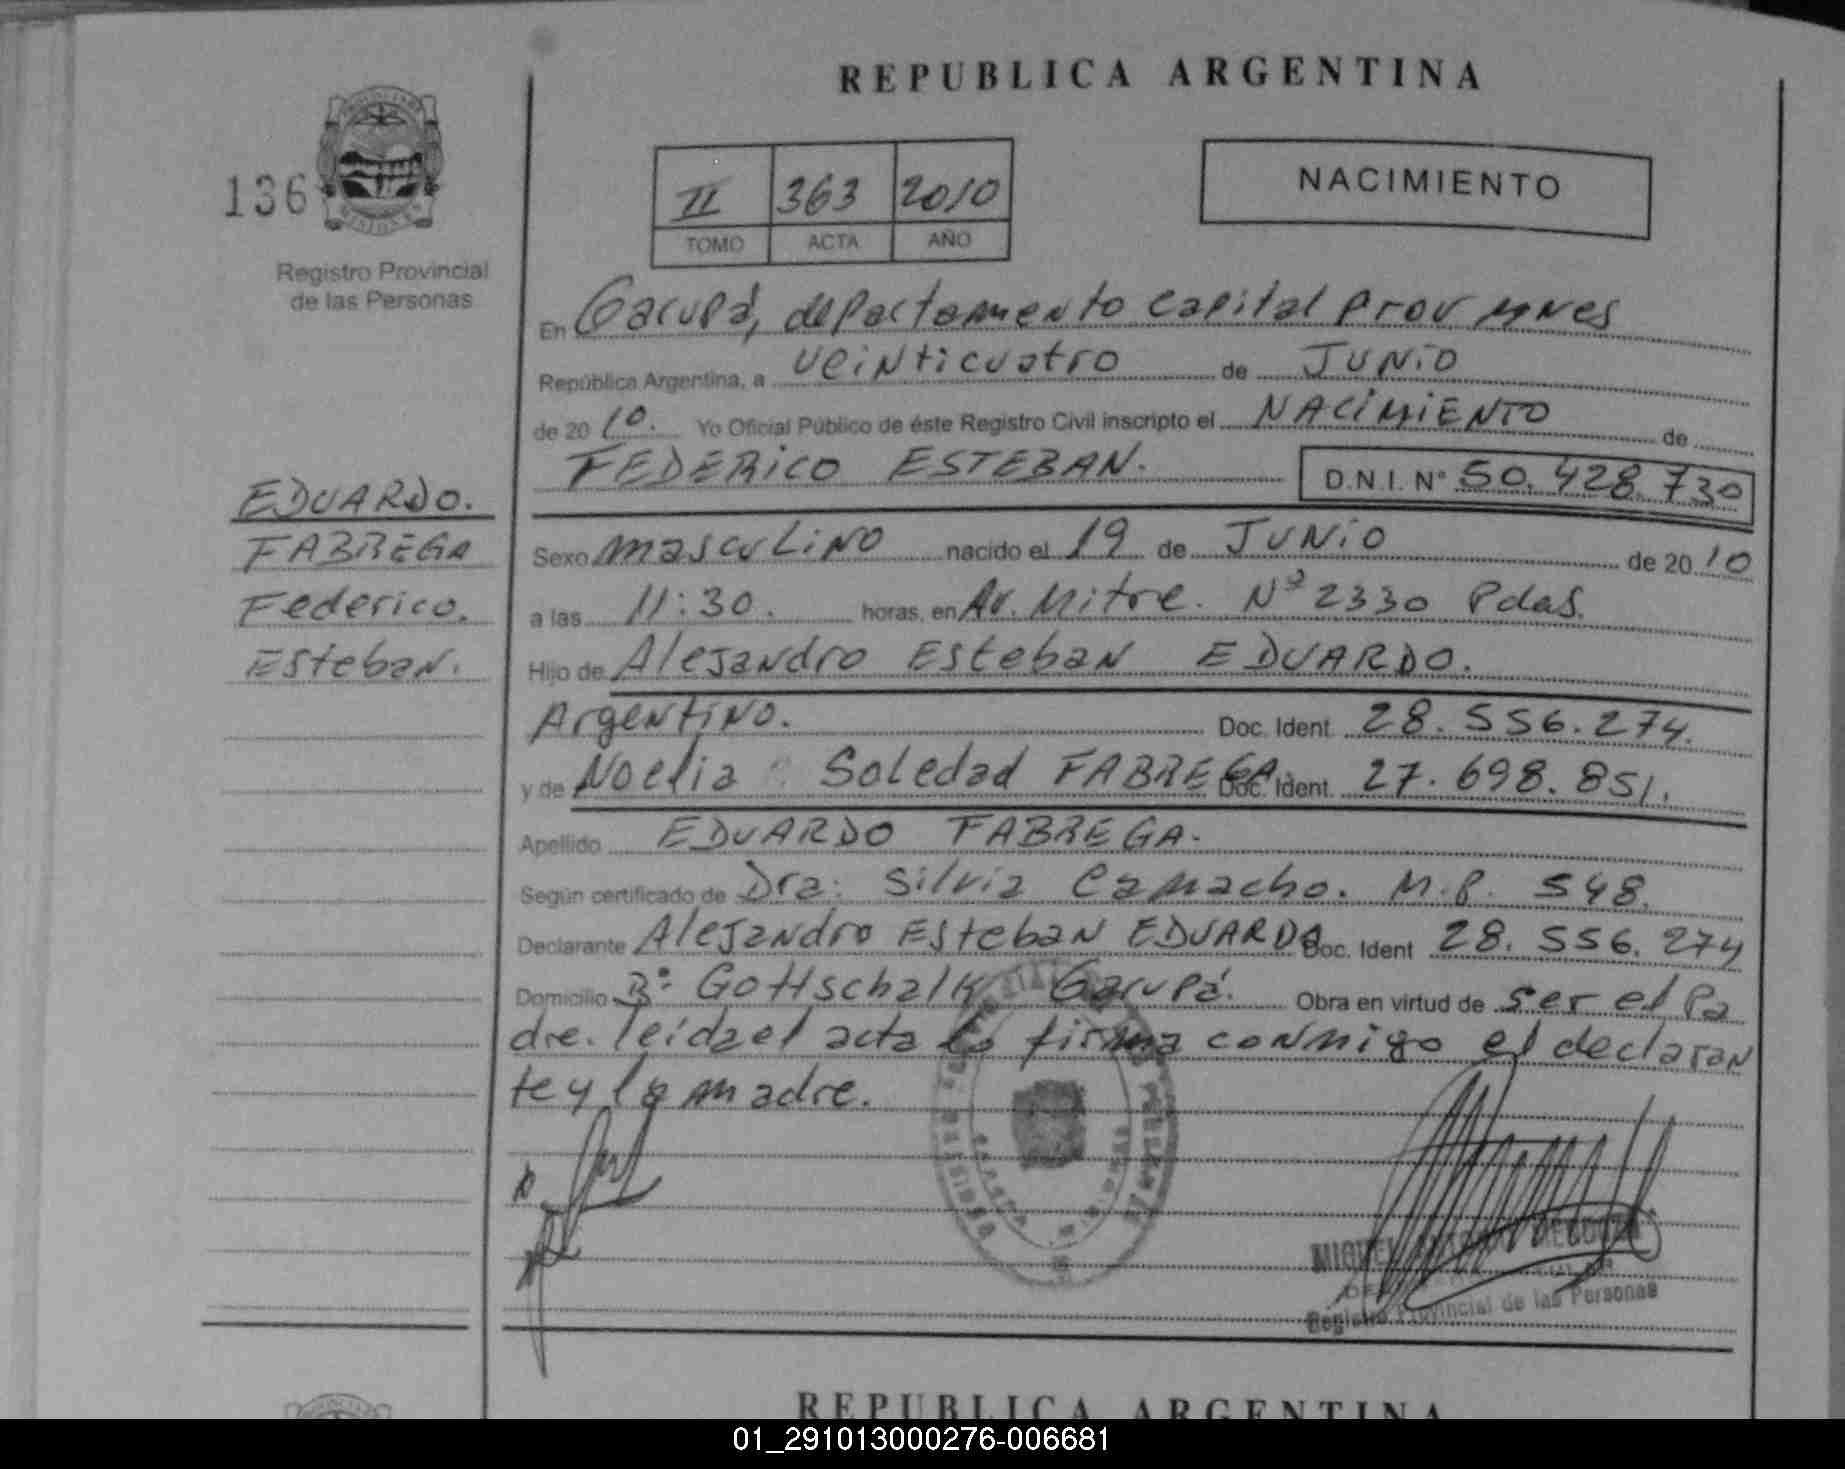 REPUBLICA ARGENTINA
136
II 363 2010
TOMO ACTA AÑO
NACIMIENTO
Registro Provincial
de las Personas
En Garupá, departamento Capital Prov Mnes
República Argentina, a veinticuatro de JUNIO
de 2010. Yo Oficial Público de éste Registro Civil inscripto el NACIMIENTO de
FEDERICO ESTEBAN. D.N.I. N° 50.428.730
EDUARDO.
FABREGA
Federico.
Esteban.
Sexo masculino nacido el 19 de JUNIO de 2010
a las 11:30. horas, en Av. Mitre. Nº 2330 Pdas.
Hijo de Alejandro Esteban EDUARDO.
Argentino. Doc. Ident. 28.556.274.
y de Noelia Soledad FABREGA. Doc. Ident. 27.698.851.
Apellido EDUARDO FABREGA.
Según certificado de Dra: Silvia Camacho. M.P. 548.
Declarante Alejandro Esteban EDUARDO Doc. Ident 28.556.274
Domicilio Bº Gottschalk Garupá. Obra en virtud de ser el Pa
dre. leida el acta la firma conmigo el declaran
te y la madre.
MIGUEL
Registro Provincial de las Personas
REPUBLICA ARGENTINA
01_291013000276-006681